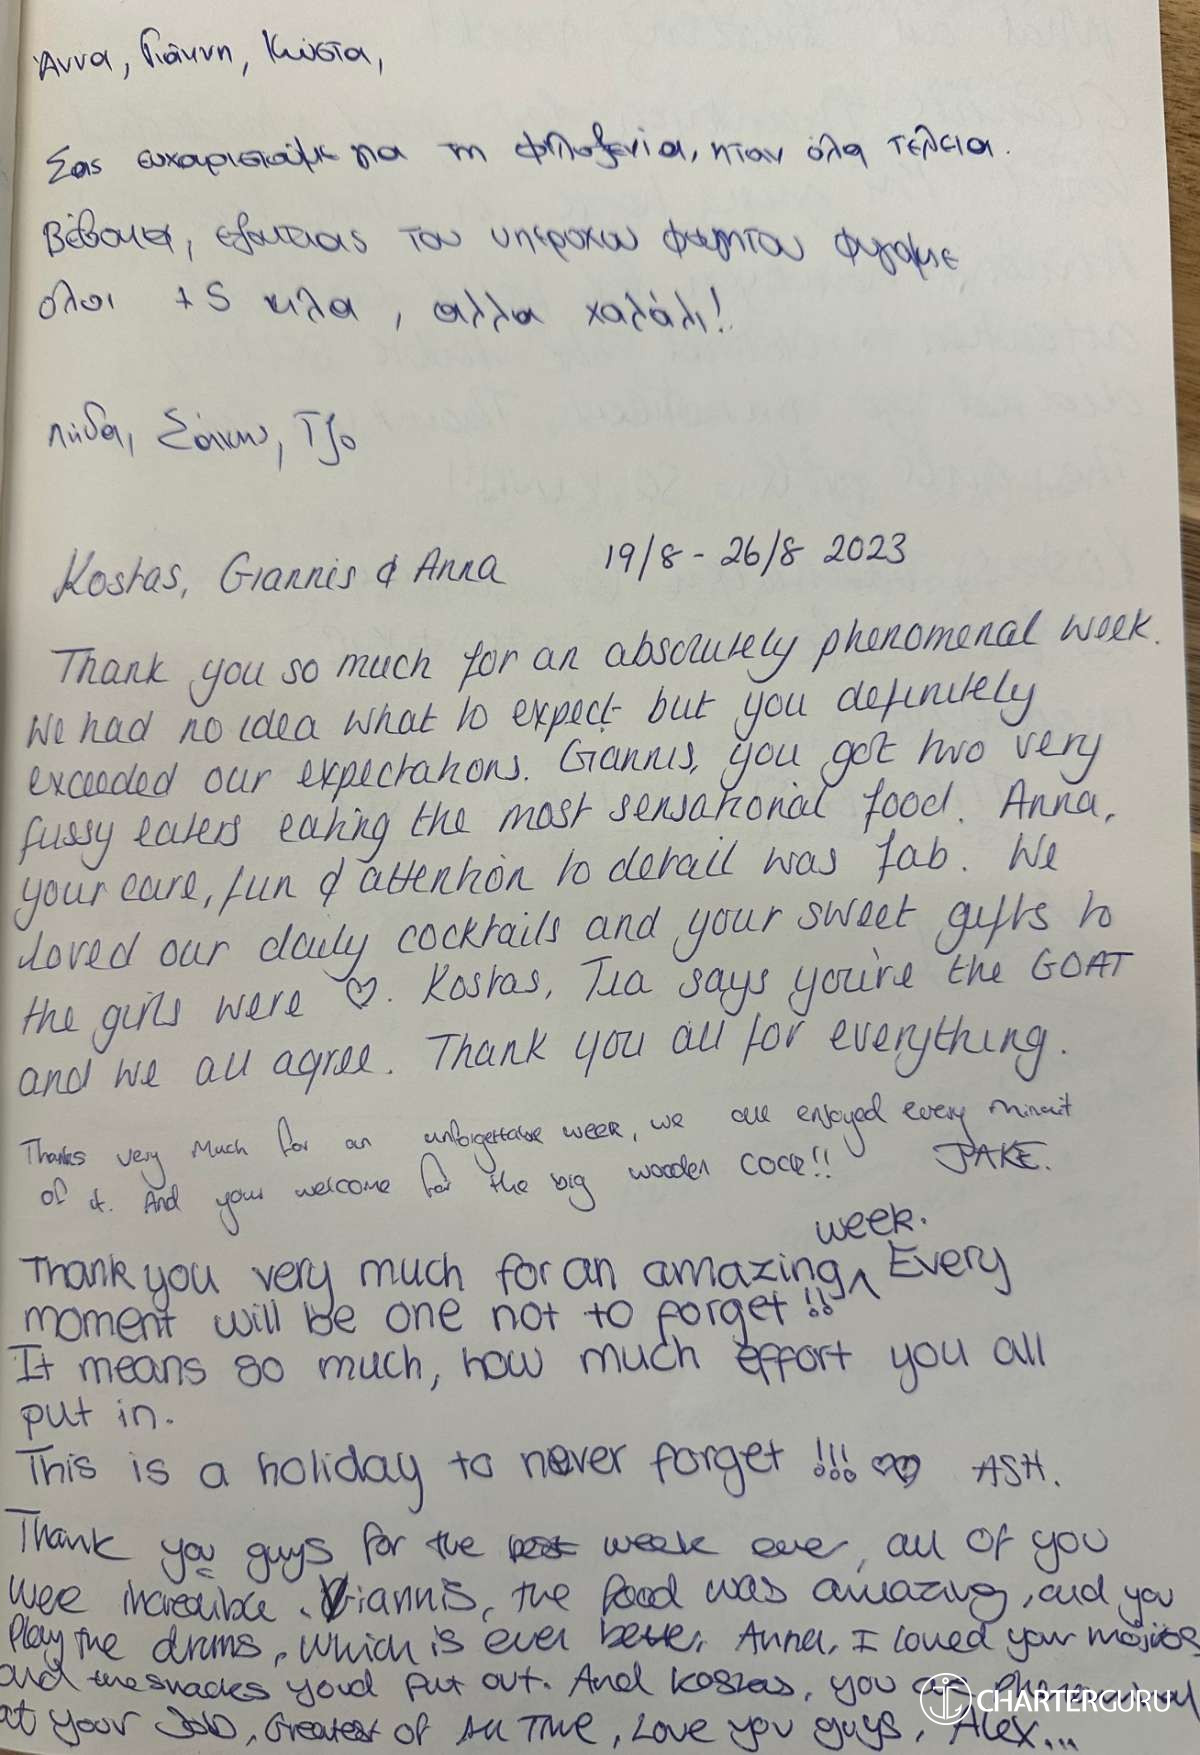 Άννα, Γιάννη, Κώστα,
Σας ευχαριστούμε για τη φιλοξενία, ηταν όλα τέλεια.
Βέβαια, εξαιτιας του υπεροχου φαγητου φυγαμε
όλοι +5 κιλα, αλλα χαλάλι!
Λήδα, Σάκης, Τζο
Kostas, Giannis & Anna 19/8 - 26/8 2023
Thank you so much for an absolutely phenomenal week.
We had no idea what to expect but you definitely
exceeded our expectations. Giannis, you got two very
fussy eaters eating the most sensational food. Anna,
your care, fun & attention to detail was fab. We
loved our daily cocktails and your sweet gifts to
the girls were ♡. Kostas, Tia says you're the GOAT
and we all agree. Thank you all for everything.
Thanks very much for an unforgettable week, we all enjoyed every minuit
of it. And your welcome for the big wooden cock!! JAKE.
Thank you very much for an amazing week. Every
moment will be one not to forget!!
It means so much, how much effort you all
put in.
This is a holiday to never forget!!! ♡♡ ASH.
Thank you guys for the best week ever, all of you
were incredible. Giannis, the food was amazing, and you
Play the drums, which is even better. Anna, I loved your mojitos
and the snacks you'd put out. And Kostas, you are phenomenal
at your Job, Greatest of All Time, Love you guys, Alex...
CHARTERGURU